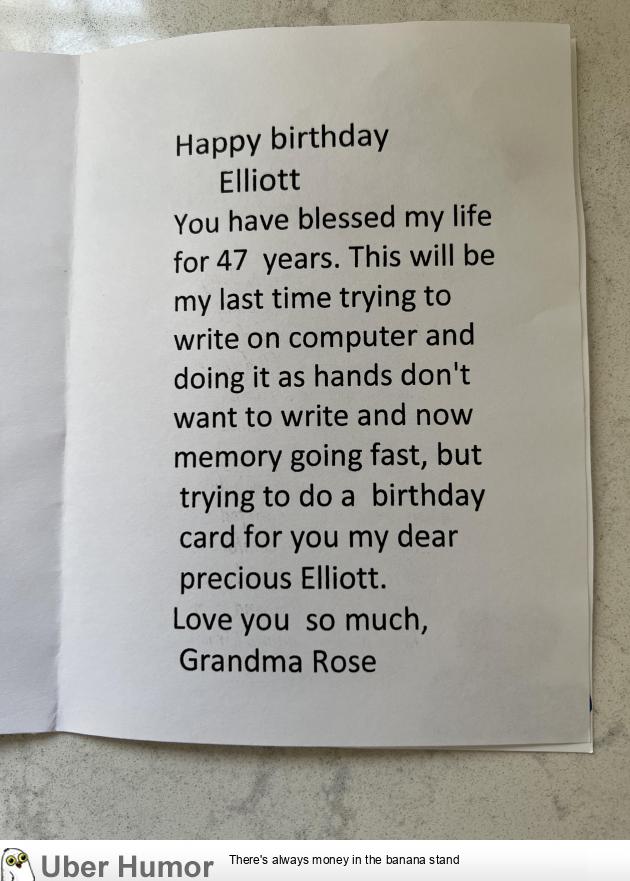 Happy birthday
Elliott
You have blessed my life
for 47  years. This will be
my last time trying to
write on computer and
doing it as hands don't
want to write and now
memory going fast, but
trying to do a  birthday
card for you my dear
precious Elliott.
Love you  so much,
Grandma Rose
Uber Humor There's always money in the banana stand